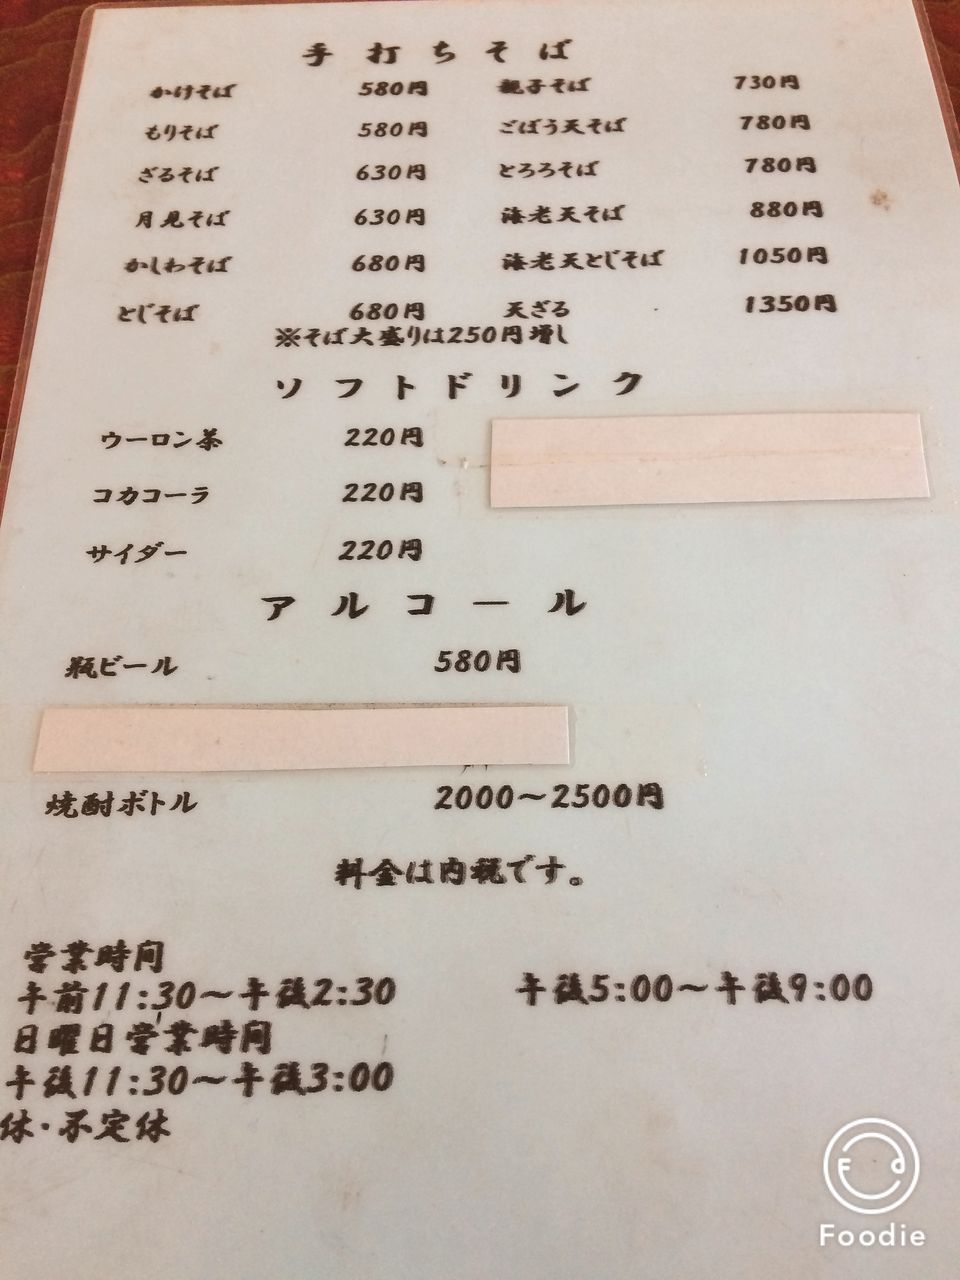 手打ちそば
かけそば 580円 親子そば 730円
もりそば 580円 ごぼう天そば 780円
ざるそば 630円 とろろそば 780円
月見そば 630円 海老天そば 880円
かしわそば 680円 海老天とじそば 1050円
とじそば 680円 天ざる 1350円
※そば大盛りは250円増し
ソフトドリンク
ウーロン茶 220円
コカコーラ 220円
サイダー 220円
アルコール
瓶ビール 580円
焼酎ボトル 2000～2500円
料金は内税です。
営業時間
午前11:30～午後2:30 午後5:00～午後9:00
日曜日営業時間
午後11:30～午後3:00
休・不定休
Foodie